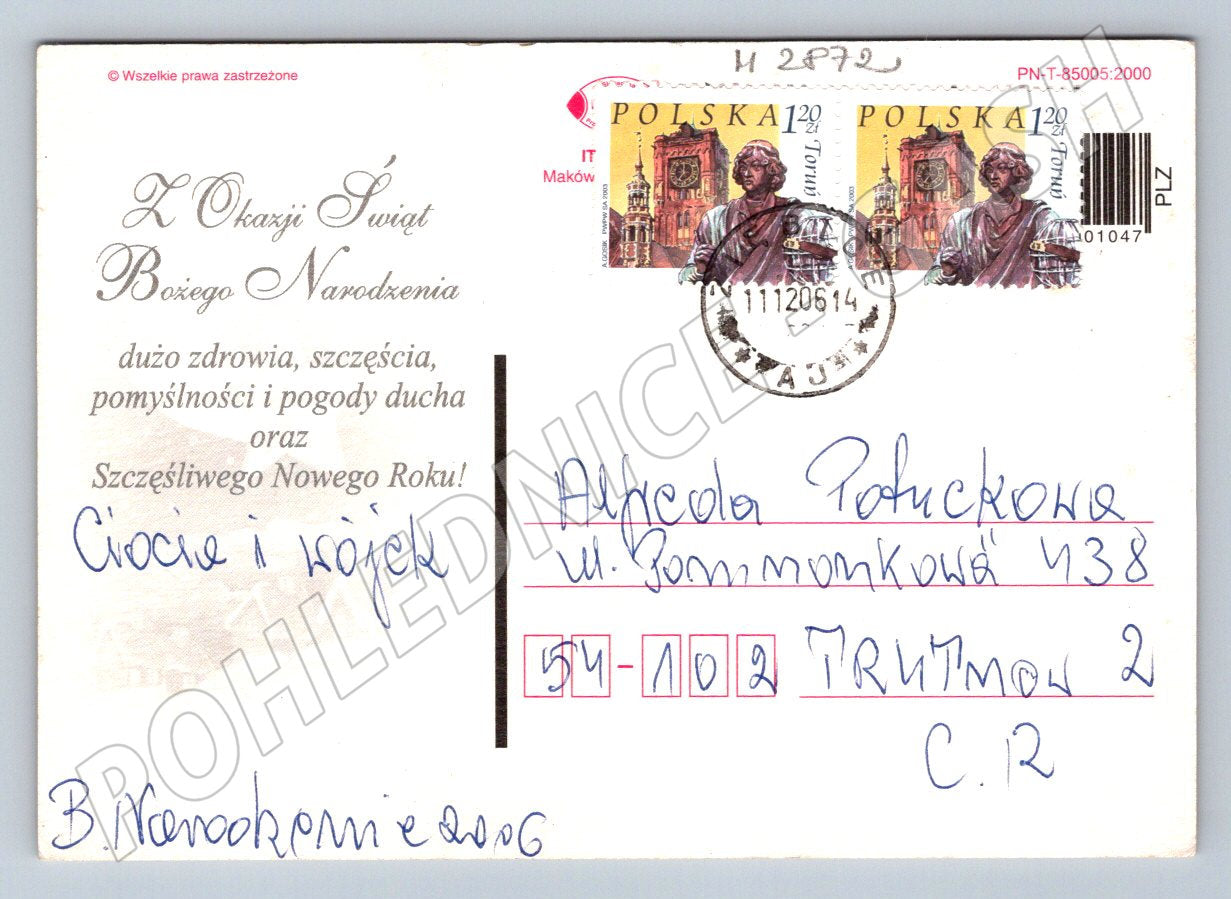 © Wszelkie prawa zastrzeżone
M 2872
PN-T-85005:2000
IT
Maków
POLSKA 1,20 zł Toruń
A.GOSIK PWPW SA 2003
POLSKA 1,20 zł Toruń
2003
PLZ
01047
11120614
Z Okazji Świąt
Bożego Narodzenia
dużo zdrowia, szczęścia,
pomyślności i pogody ducha
oraz
Szczęśliwego Nowego Roku!
Ciocia i wójek
B. Narodzenie 2006
Alfreda Potuckowa
ul. Pommonkowá 438
54-102 TRUTNOW 2
C.R
POHLEDNICE - OSH